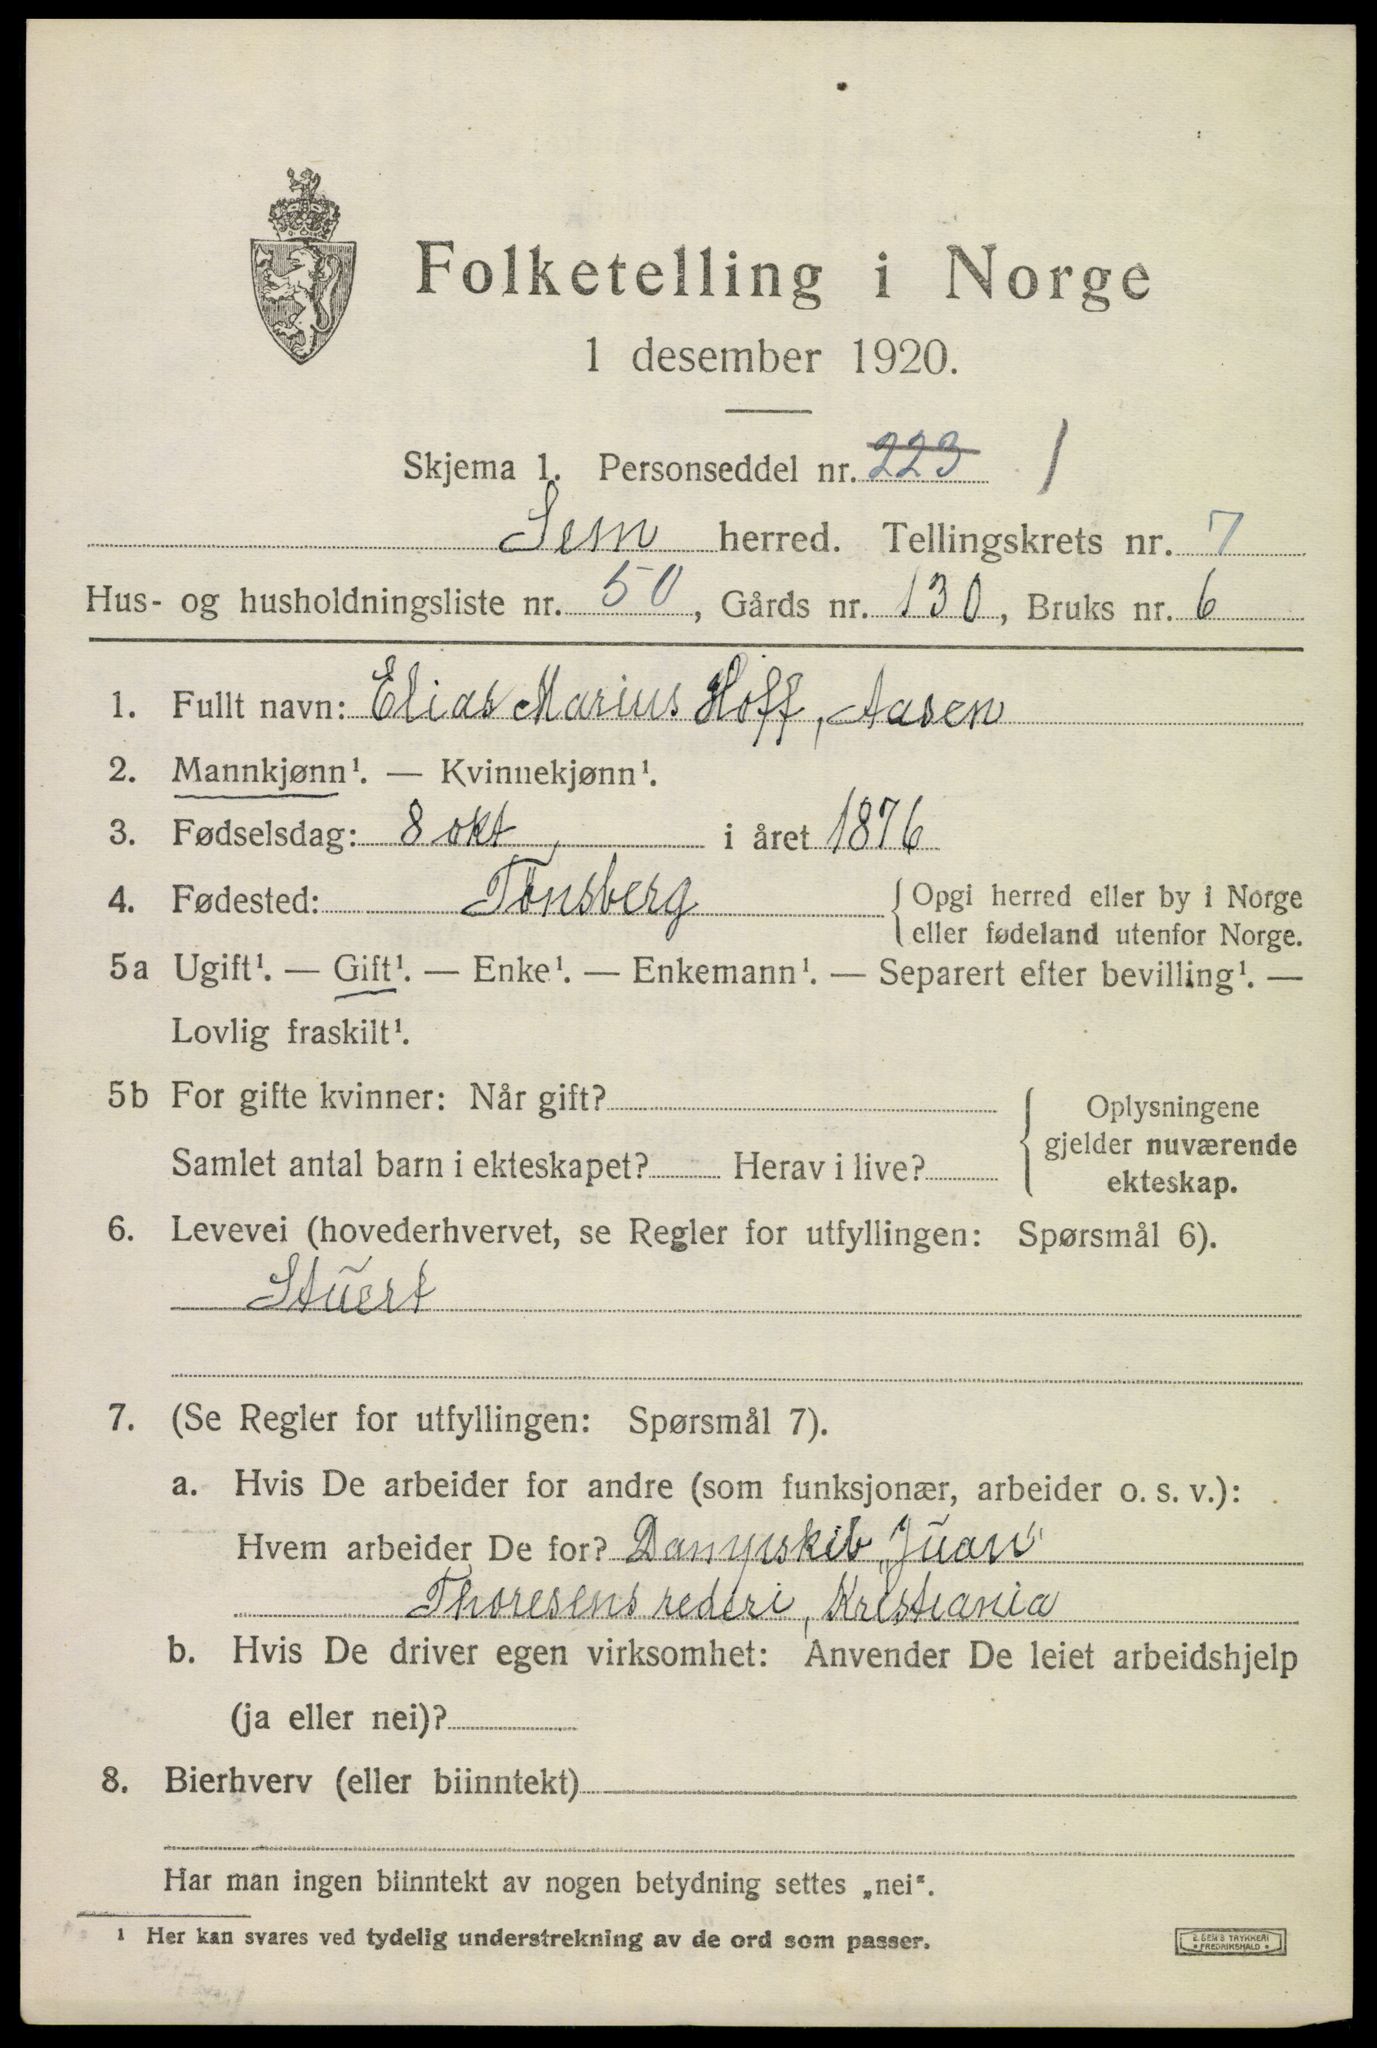 Folketelling i Norge
1 desember 1920.
Skjema 1. Personseddel nr. 223 1
Sem herred. Tellingskrets nr. 7
Hus- og husholdningsliste nr. 50, Gårds nr. 130, Bruks nr. 6
1. Fullt navn: Elias Marius Hoff, Aasen
2. Mannkjønn¹. — Kvinnekjønn¹.
3. Fødselsdag: 8 okt, i året 1876
4. Fødested: Tønsberg { Opgi herred eller by i Norge
eller fødeland utenfor Norge.
5a Ugift¹. — Gift¹. — Enke¹. — Enkemann¹. — Separert efter bevilling¹. —
Lovlig fraskilt¹.
5b For gifte kvinner: Når gift?
Samlet antal barn i ekteskapet? Herav i live?
Oplysningene
gjelder nuværende
ekteskap.
6. Levevei (hovederhvervet, se Regler for utfyllingen: Spørsmål 6).
Stüert
7. (Se Regler for utfyllingen: Spørsmål 7).
a. Hvis De arbeider for andre (som funksjonær, arbeider o. s. v.):
Hvem arbeider De for? Dampskib „Jüan"
Thoresens rederi, Kristiania
b. Hvis De driver egen virksomhet: Anvender De leiet arbeidshjelp
(ja eller nei)?
8. Bierhverv (eller biinntekt)
Har man ingen biinntekt av nogen betydning settes „nei".
¹ Her kan svares ved tydelig understrekning av de ord som passer.
E. SEM'S TRYKKERI
FREDRIKSHALD